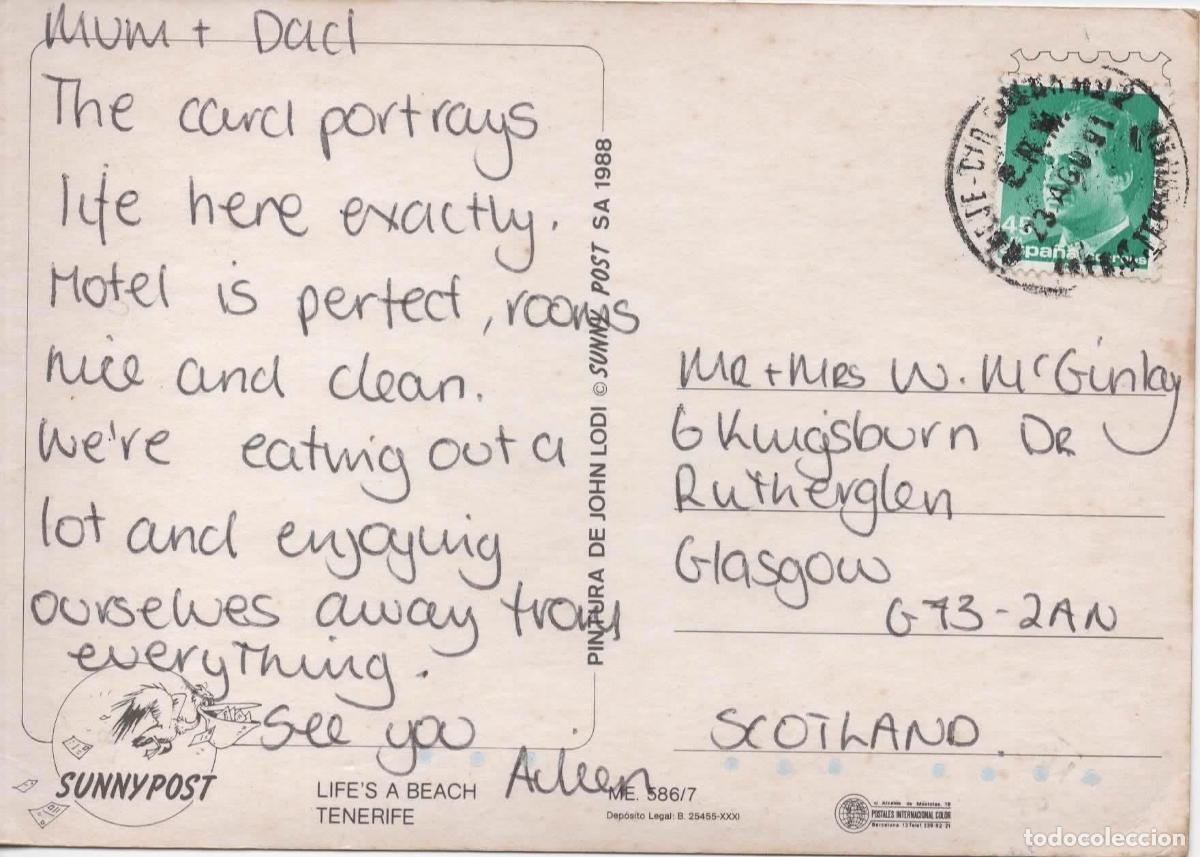 Mum + Dad
The card portrays
life here exactly.
Hotel is perfect, rooms
nice and clean.
We're eating out a
lot and enjoying
ourselves away from
everything.
See you
SUNNYPOST
LIFE'S A BEACH
TENERIFE
PINTURA DE JOHN LODI © SUNNY POST SA 1988
ME. 586/7
Depósito Legal: B. 25455-XXXI
45
España correos
23 AGO 91
MR + MRS W. McGinlay
6 Kingsburn DR
Rutherglen
Glasgow
G73-2AN
SCOTLAND.
POSTALES INTERNACIONAL COLOR
todocoleccion